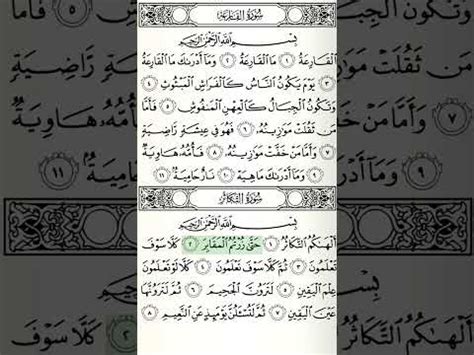 سُورَةُ القَارِعَةِ
بِسْمِ ٱللَّهِ ٱلرَّحْمَٰنِ ٱلرَّحِيمِ
ٱلْقَارِعَةُ ١ مَا ٱلْقَارِعَةُ ٢ وَمَآ أَدْرَىٰكَ مَا ٱلْقَارِعَةُ
٣ يَوْمَ يَكُونُ ٱلنَّاسُ كَٱلْفَرَاشِ ٱلْمَبْثُوثِ ٤
وَتَكُونُ ٱلْجِبَالُ كَٱلْعِهْنِ ٱلْمَنفُوشِ ٥ فَأَمَّا
مَن ثَقُلَتْ مَوَٰزِينُهُۥ ٦ فَهُوَ فِى عِيشَةٍ رَّاضِيَةٍ
٧ وَأَمَّا مَنْ خَفَّتْ مَوَٰزِينُهُۥ ٨ فَأُمُّهُۥ هَاوِيَةٌ
٩ وَمَآ أَدْرَىٰكَ مَا هِيَهْ ١٠ نَارٌ حَامِيَةٌۢ ١١
سُورَةُ التَّكَاثُرِ
بِسْمِ ٱللَّهِ ٱلرَّحْمَٰنِ ٱلرَّحِيمِ
أَلْهَىٰكُمُ ٱلتَّكَاثُرُ ١ حَتَّىٰ زُرْتُمُ ٱلْمَقَابِرَ ٢ كَلَّا سَوْفَ
تَعْلَمُونَ ٣ ثُمَّ كَلَّا سَوْفَ تَعْلَمُونَ ٤ كَلَّا لَوْ تَعْلَمُونَ
عِلْمَ ٱلْيَقِينِ ٥ لَتَرَوُنَّ ٱلْجَحِيمَ ٦ ثُمَّ لَتَرَوُنَّهَا
عَيْنَ ٱلْيَقِينِ ٧ ثُمَّ لَتُسْـَٔلُنَّ يَوْمَئِذٍ عَنِ ٱلنَّعِيمِ ٨